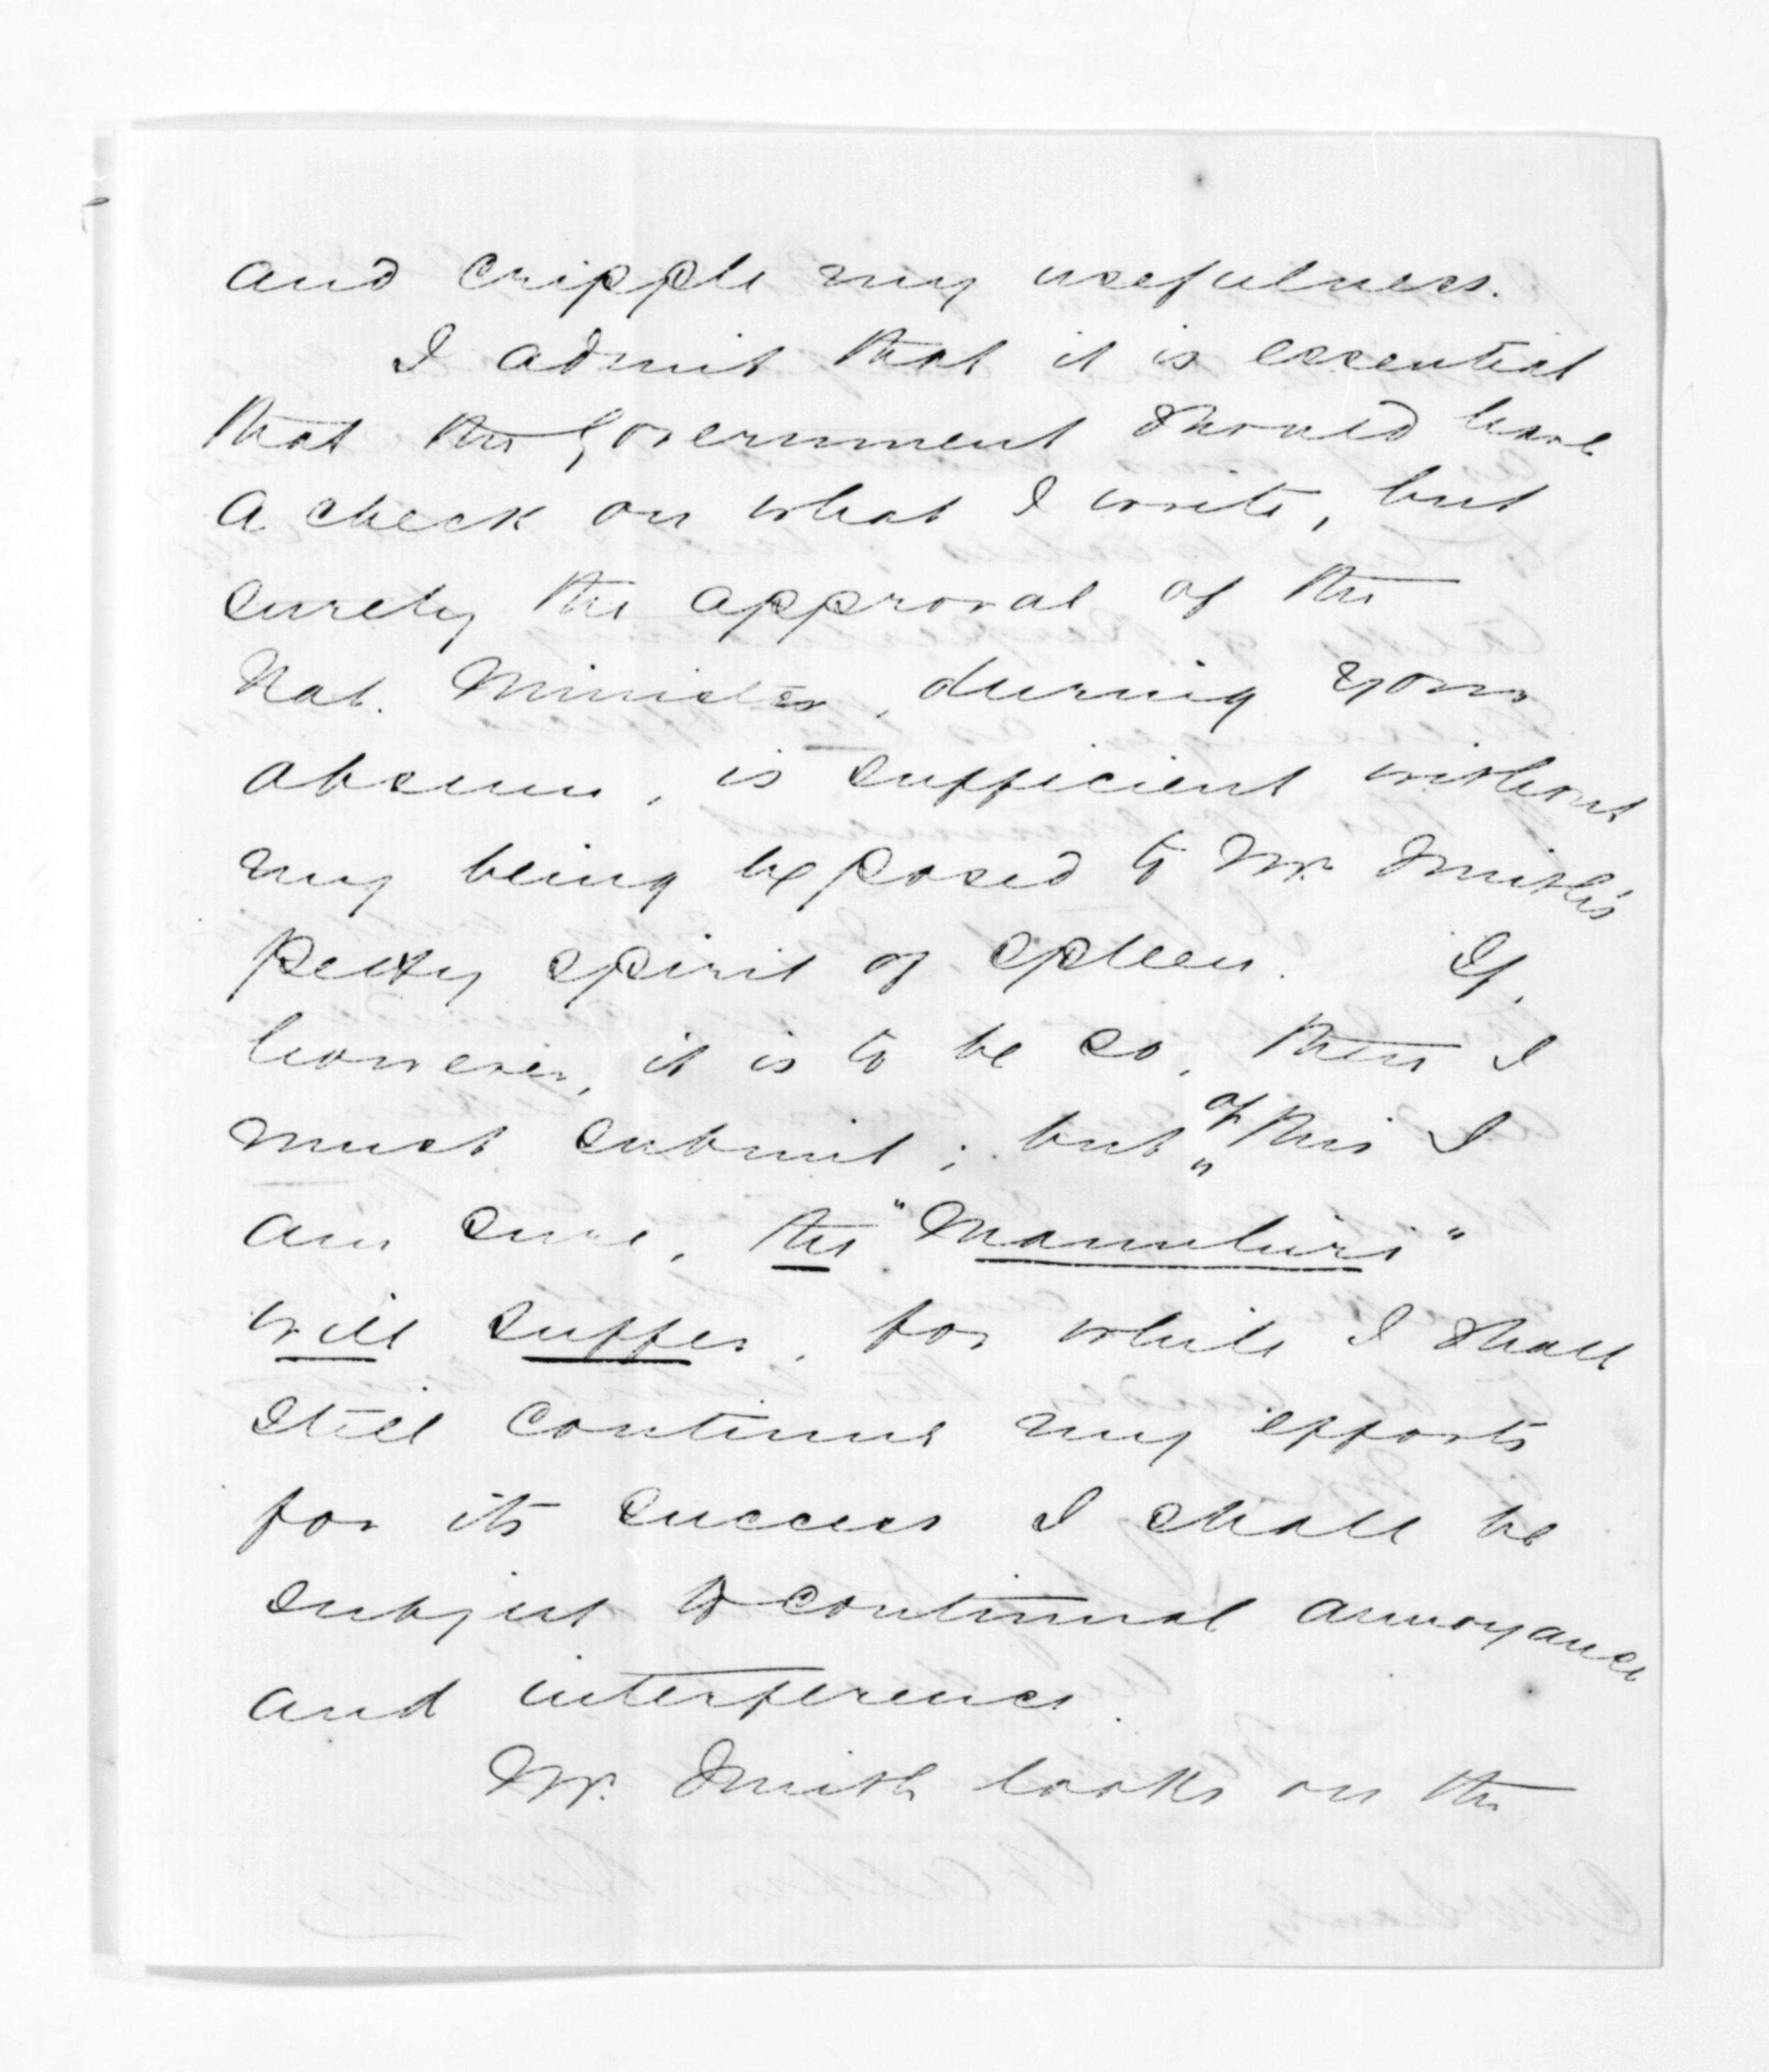 and cripple my usefulness.
I admit that it is essential
that the Government should have
a check on what I write, but
surely the approval of the
Nat. Minister, during your
absence, is sufficient without
my being exposed to Mr. Smith's
petty spirit of spleen. If,
however, it is to be so, then I
must submit; but of this I
am sure, the "Mannhiri"
will suffer, for while I shall
still continue my efforts
for its success I shall be
subject to continual annoyance
and interference.
Mr. Smith looks on the